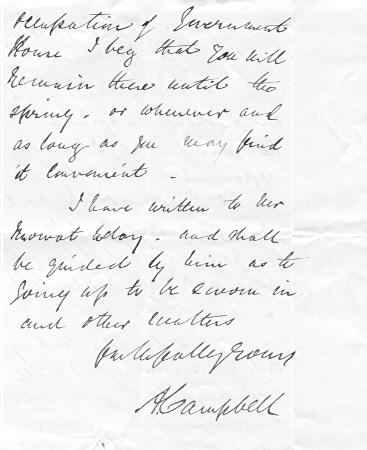 occupation of Government
House I beg that you will
remain there until the
spring. or whenever and
as long as you may find
it convenient.
I have written to Mr
Mowat today. and shall
be guided by him as to
going up to be sworn in
and other matters
faithfully yours
A Campbell